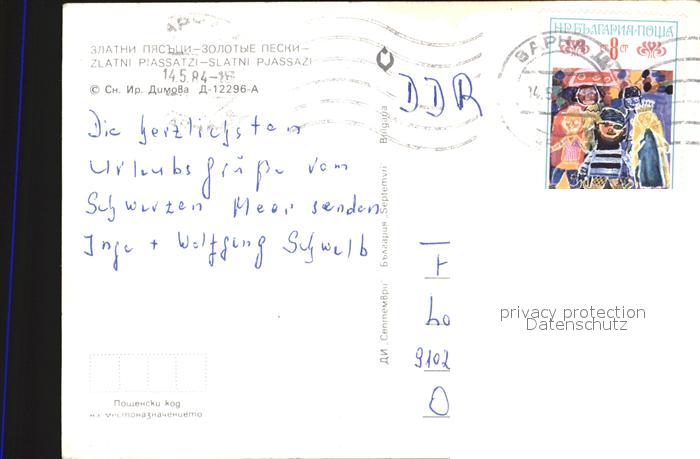 ЗЛАТНИ ПЯСЪЦИ–ЗОЛОТЫЕ ПЕСКИ–
ZLATNI PIASSATZI–SLATNI PJASSAZI
14.5.84
© Сн. Ир. Димова Д-12296-А
Die herzlichsten
Urlaubsgrüße vom
Schwarzen Meer senden
Inge + Wolfgang Schwalb
Пощенски код
на местоназначението
ДИ „Септември" България „Septemvri" Bulgaria
DDR
НР БЪЛГАРИЯ·ПОЩА
8 СТ
ВАРНА
14.5
9102
privacy protection
Datenschutz